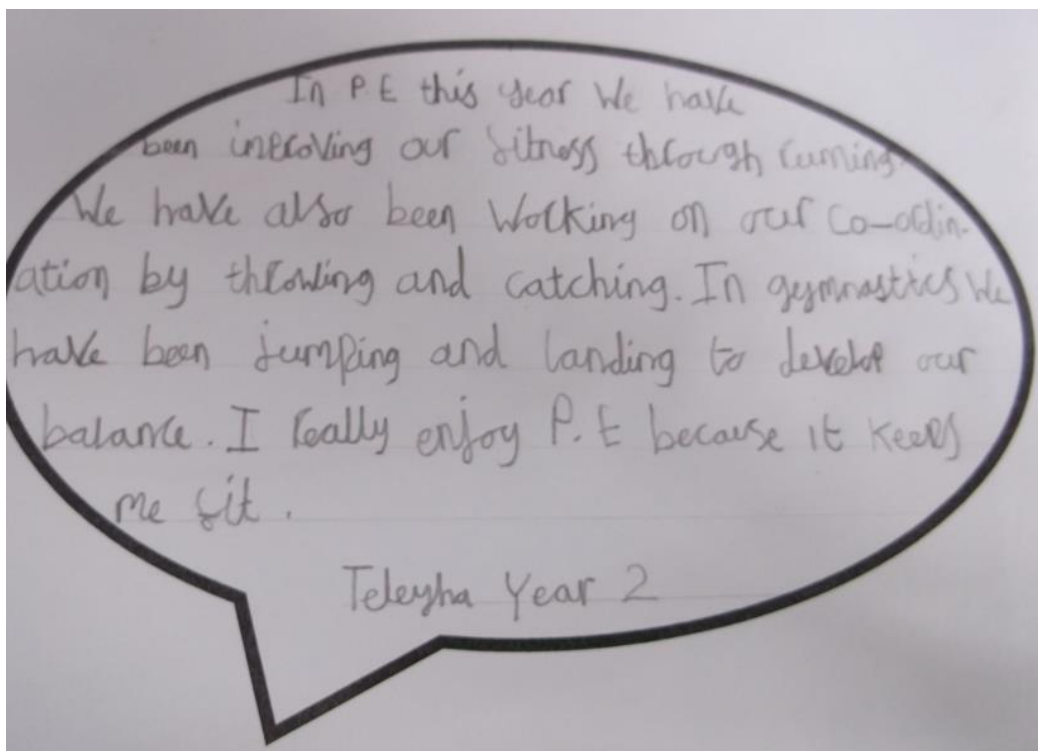 In P.E this year We have
been improving our fitness through running.
We have also been working on our co-ordin-
ation by throwing and catching. In gymnastics We
have been jumping and landing to develop our
balance. I really enjoy P.E because it keeps
me fit.
Teleyha Year 2